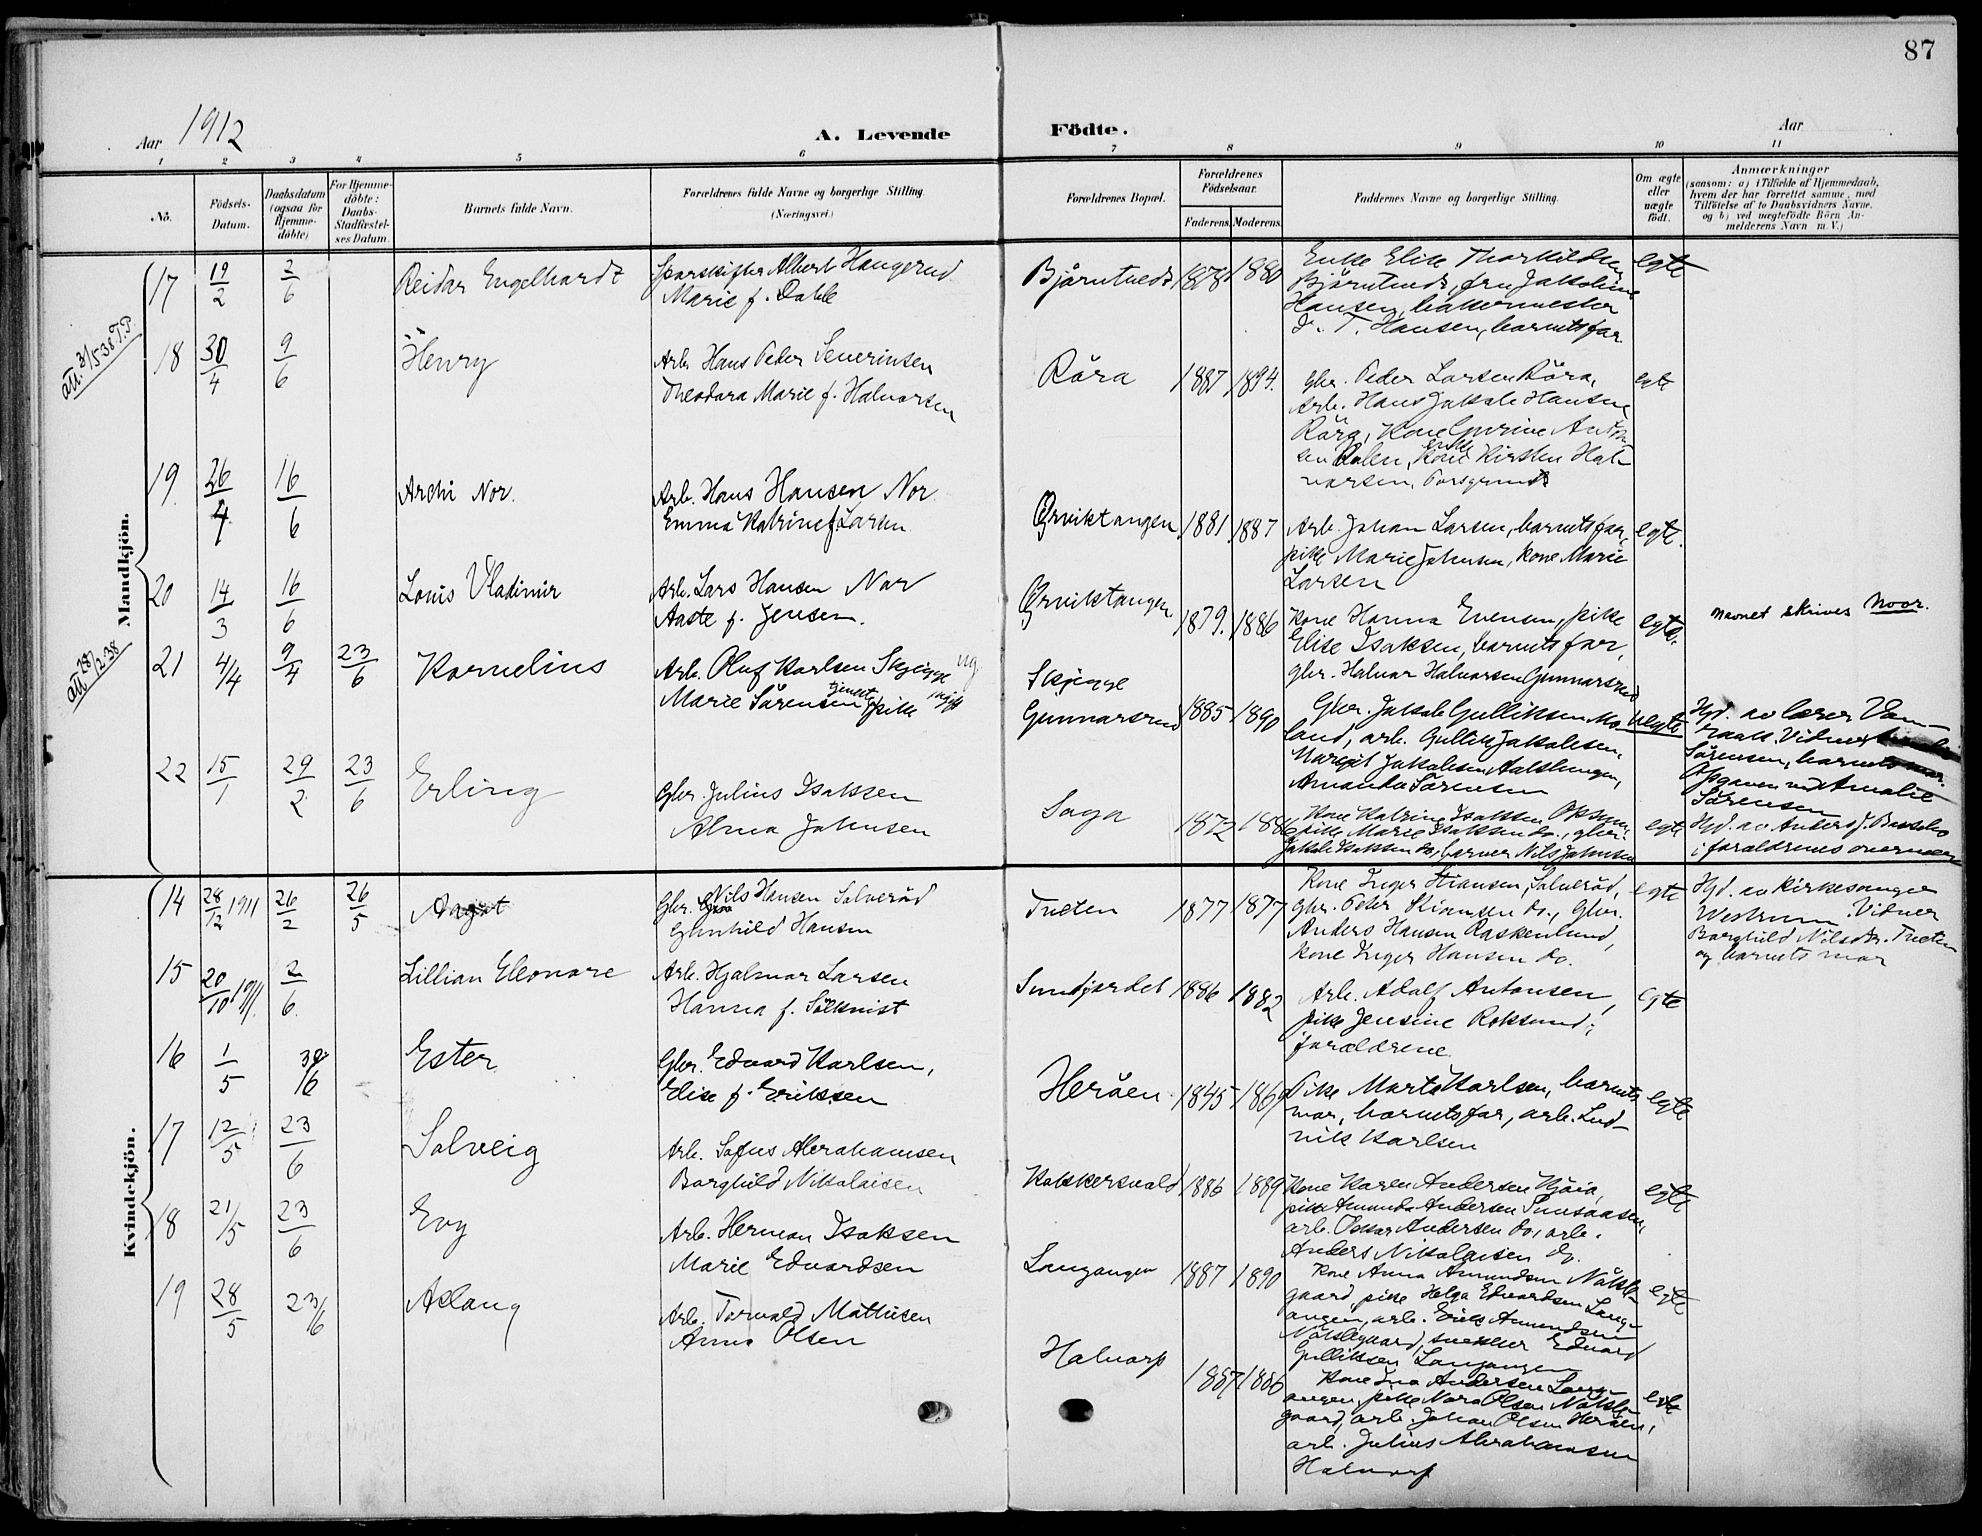 87
Aar 1912
A. Levende Födte.
Aar
1 2 3 4 5 6 7 8 9 10 11
No.
Födsels-
Datum.
Daabsdatum
(ogsaa for
Hjemme-
döbte)
For Hjemme-
döbte:
Daabs-
Stadfæstel-
ses Datum.
Barnets fulde Navn.
Forældrenes fulde Navne og borgerlige Stilling.
(Næringsvei.)
Forældrenes Bopæl.
Forældrenes
Födselsaar.
Faderens. Moderens.
Faddernes Navne og borgerlige Stilling.
Om ægte
eller
uægte
födt.
Anmærkninger
(saasom: a) i Tilfælde af Hjemmedaab,
hvem der har forrettet samme, med
Tilföielse af to Daabsvidners Navne,
og b) ved uægtefödte Börn An-
melderens Navn m. V.)
Mandkjön.
17 19/2 2/6 Reidar Engelhardt
Sporskifter Albert Haugerud
Marie f. Dahle
Björntvedt 1878 1880
Enke Elise Thorkildsen
Björntvedt, fru Jakobine
Hansen, bakermester
T. Hansen, barnets far
egte
att. 3/5 38 T.P.
18 30/4 9/6 Henry
Arb. Hans Peder Severinsen
Theodora Marie f. Halvorsen
Röra 1887 1894.
Gbr. Peder Larsen Röra,
Arb. Hans Jakob Hansen
Röra, kone Gurine Anton-
sen Dalen, enke Kirsten Hal-
vorsen, Porsgrund
egte
19. 26/4 16/6 Archi Nor.
Arb. Hans Hansen Nor
Emma Katrine f. Larsen
Ørviktangen 1881. 1887
Arb. Johan Larsen, barnets far,
pike Marie Johnsen, kone Marie
Larsen
egte.
20 14/3 16/6 Louis Vladimir
Arb. Lars Hansen Nor
Aaste f. Jensen.
Ørviktangen 1879. 1886
Kone Hanna Evensen, pike
Elise Isaksen, barnets far,
gbr. Halvor Halvorsen Gunnarsrud
egte.
Navnet skrives Noor.
att 28/2-38
21 4/4 9/4 23/6 Kornelius
Arb. Oluf Karlsen Skjegge ug.
Marie Sörensen tjenestepike ugift
Skjegge
Gunnarsrud 1885 1890
Gbr. Jakob Gulliksen Mo-
land, arb. Gullik Jakobsen,
Margit Jakobsen Aaklungen,
Amanda Sörensen
uegte
Hjd. av lærer Vam-
raak. Vidner
Sörensen, barnets mor.
Opgaven ved Amalie
Sörensen
22 15/1 29/2 23/6 Erling
Gbr. Julius Isaksen
Alma Johnsen
Saga 1872 1886
Kone Katrine Isaksen Oksum,
pike Marie Isaksen do., gbr.
Jakob Isaksen do., Nils Johnsen
egte
Hjd. av Anders J.
i forældrenes nærvær
Kvindekjön.
14 28/12 1911 26/2 26/5 Aagot
Gbr. Nils Hansen Solveröd
Gunhild Hansen
Tveten 1877 1877
Kone Inger Stiansen, Solveröd,
gbr. Peter Stiansen do., Gbr.
Anders Hansen Raskenlund,
kone Inger Hansen do.
egte
Hjd. av kirkesanger
Westrum. Vidner
Borghild Nilsdtr. Tveten
og barnets mor
15 20/10 1911. 2/6. Lillian Eleonore
Arb. Hjalmar Larsen
Hanna f. Sölkvist
Sundjordet 1886 1882
Arb. Adolf Antonsen,
pike Jensine Roksund,
forældrene.
egte
16 1/5 30/6 Ester
Gbr. Edvard Karlsen,
Elise f. Eriksen
Heröen 1845 1869
Pike Marta Karlsen, barnets
mor, barnets far, arb. Lud-
vik Karlsen
egte
17 12/5 23/6 Solveig
Arb. Sofus Abrahamsen
Borghild Nikolaisen
Kokkersvold 1886 1889
Kone Karen Andersen Kjöia,
pike Amanda Andersen Sunsaasen,
arb. Oskar Andersen do., arb.
Anders Nikolaisen do.
egte
18 21/5 23/6 Evy
Arb. Herman Isaksen
Marie Edvardsen
Langangen 1887 1890
Kone Anna Amundsen Nöklе-
gaard, pike Helga Edvardsen Lang-
angen, arb. Erik Amundsen
Nöklegaard, snekker Edvard
Gulliksen Langangen
egte
19 28/5 23/6 Aslaug
Arb. Torvald Mathisen
Anna Olsen
Halvarp 1887 1886
Kone Ina Andersen Lang-
angen, pike Nora Olsen Nökle-
gaard, arb. Johan Olsen Heröen,
arb. Julius Abrahamsen
Halvarp
egte